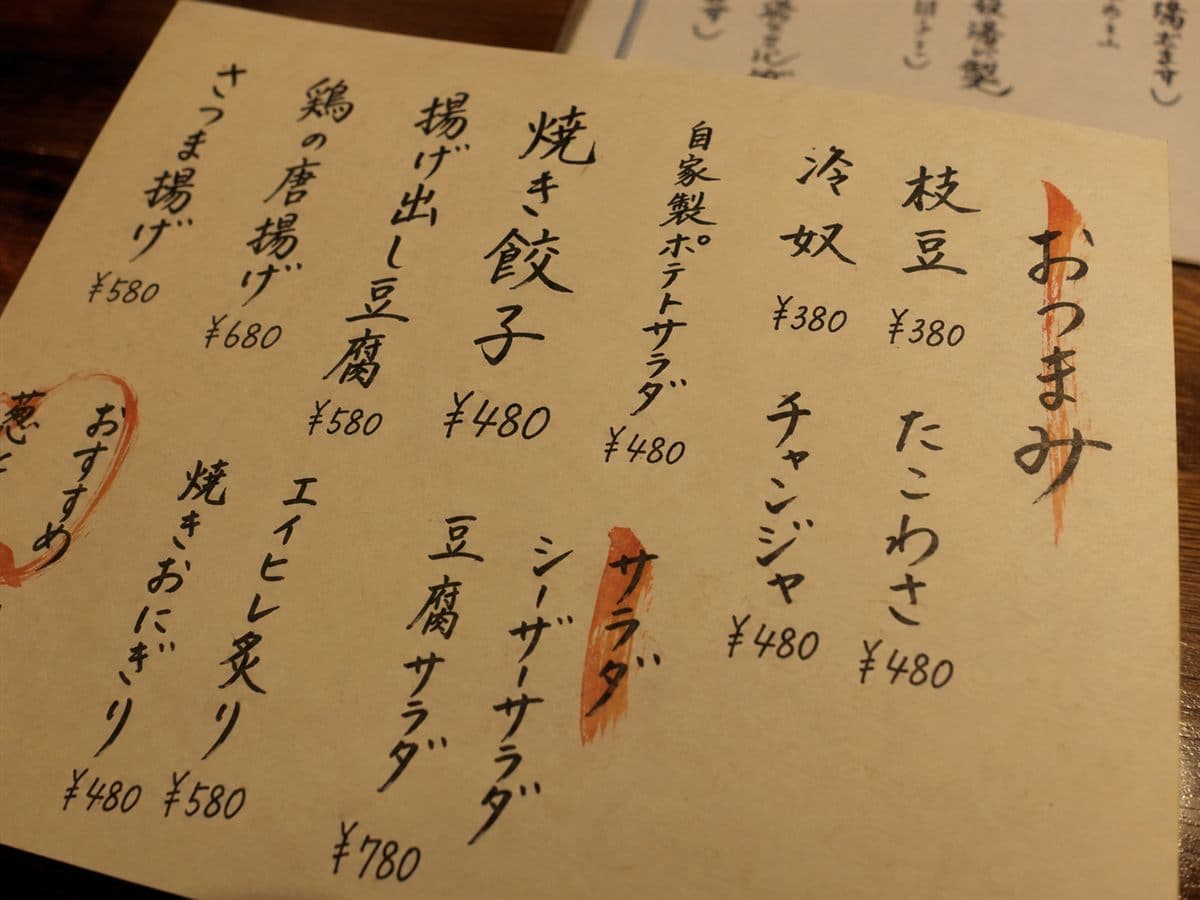 おつまみ
枝豆 ¥380
たこわさ ¥480
冷奴 ¥380
チャンジャ ¥480
自家製ポテトサラダ ¥480
サラダ
焼き餃子 ¥480
シーザーサラダ
揚げ出し豆腐 ¥580
豆腐サラダ ¥780
鶏の唐揚げ ¥680
エイヒレ炙り ¥580
さつま揚げ ¥580
焼きおにぎり ¥480
おすすめ
葱と